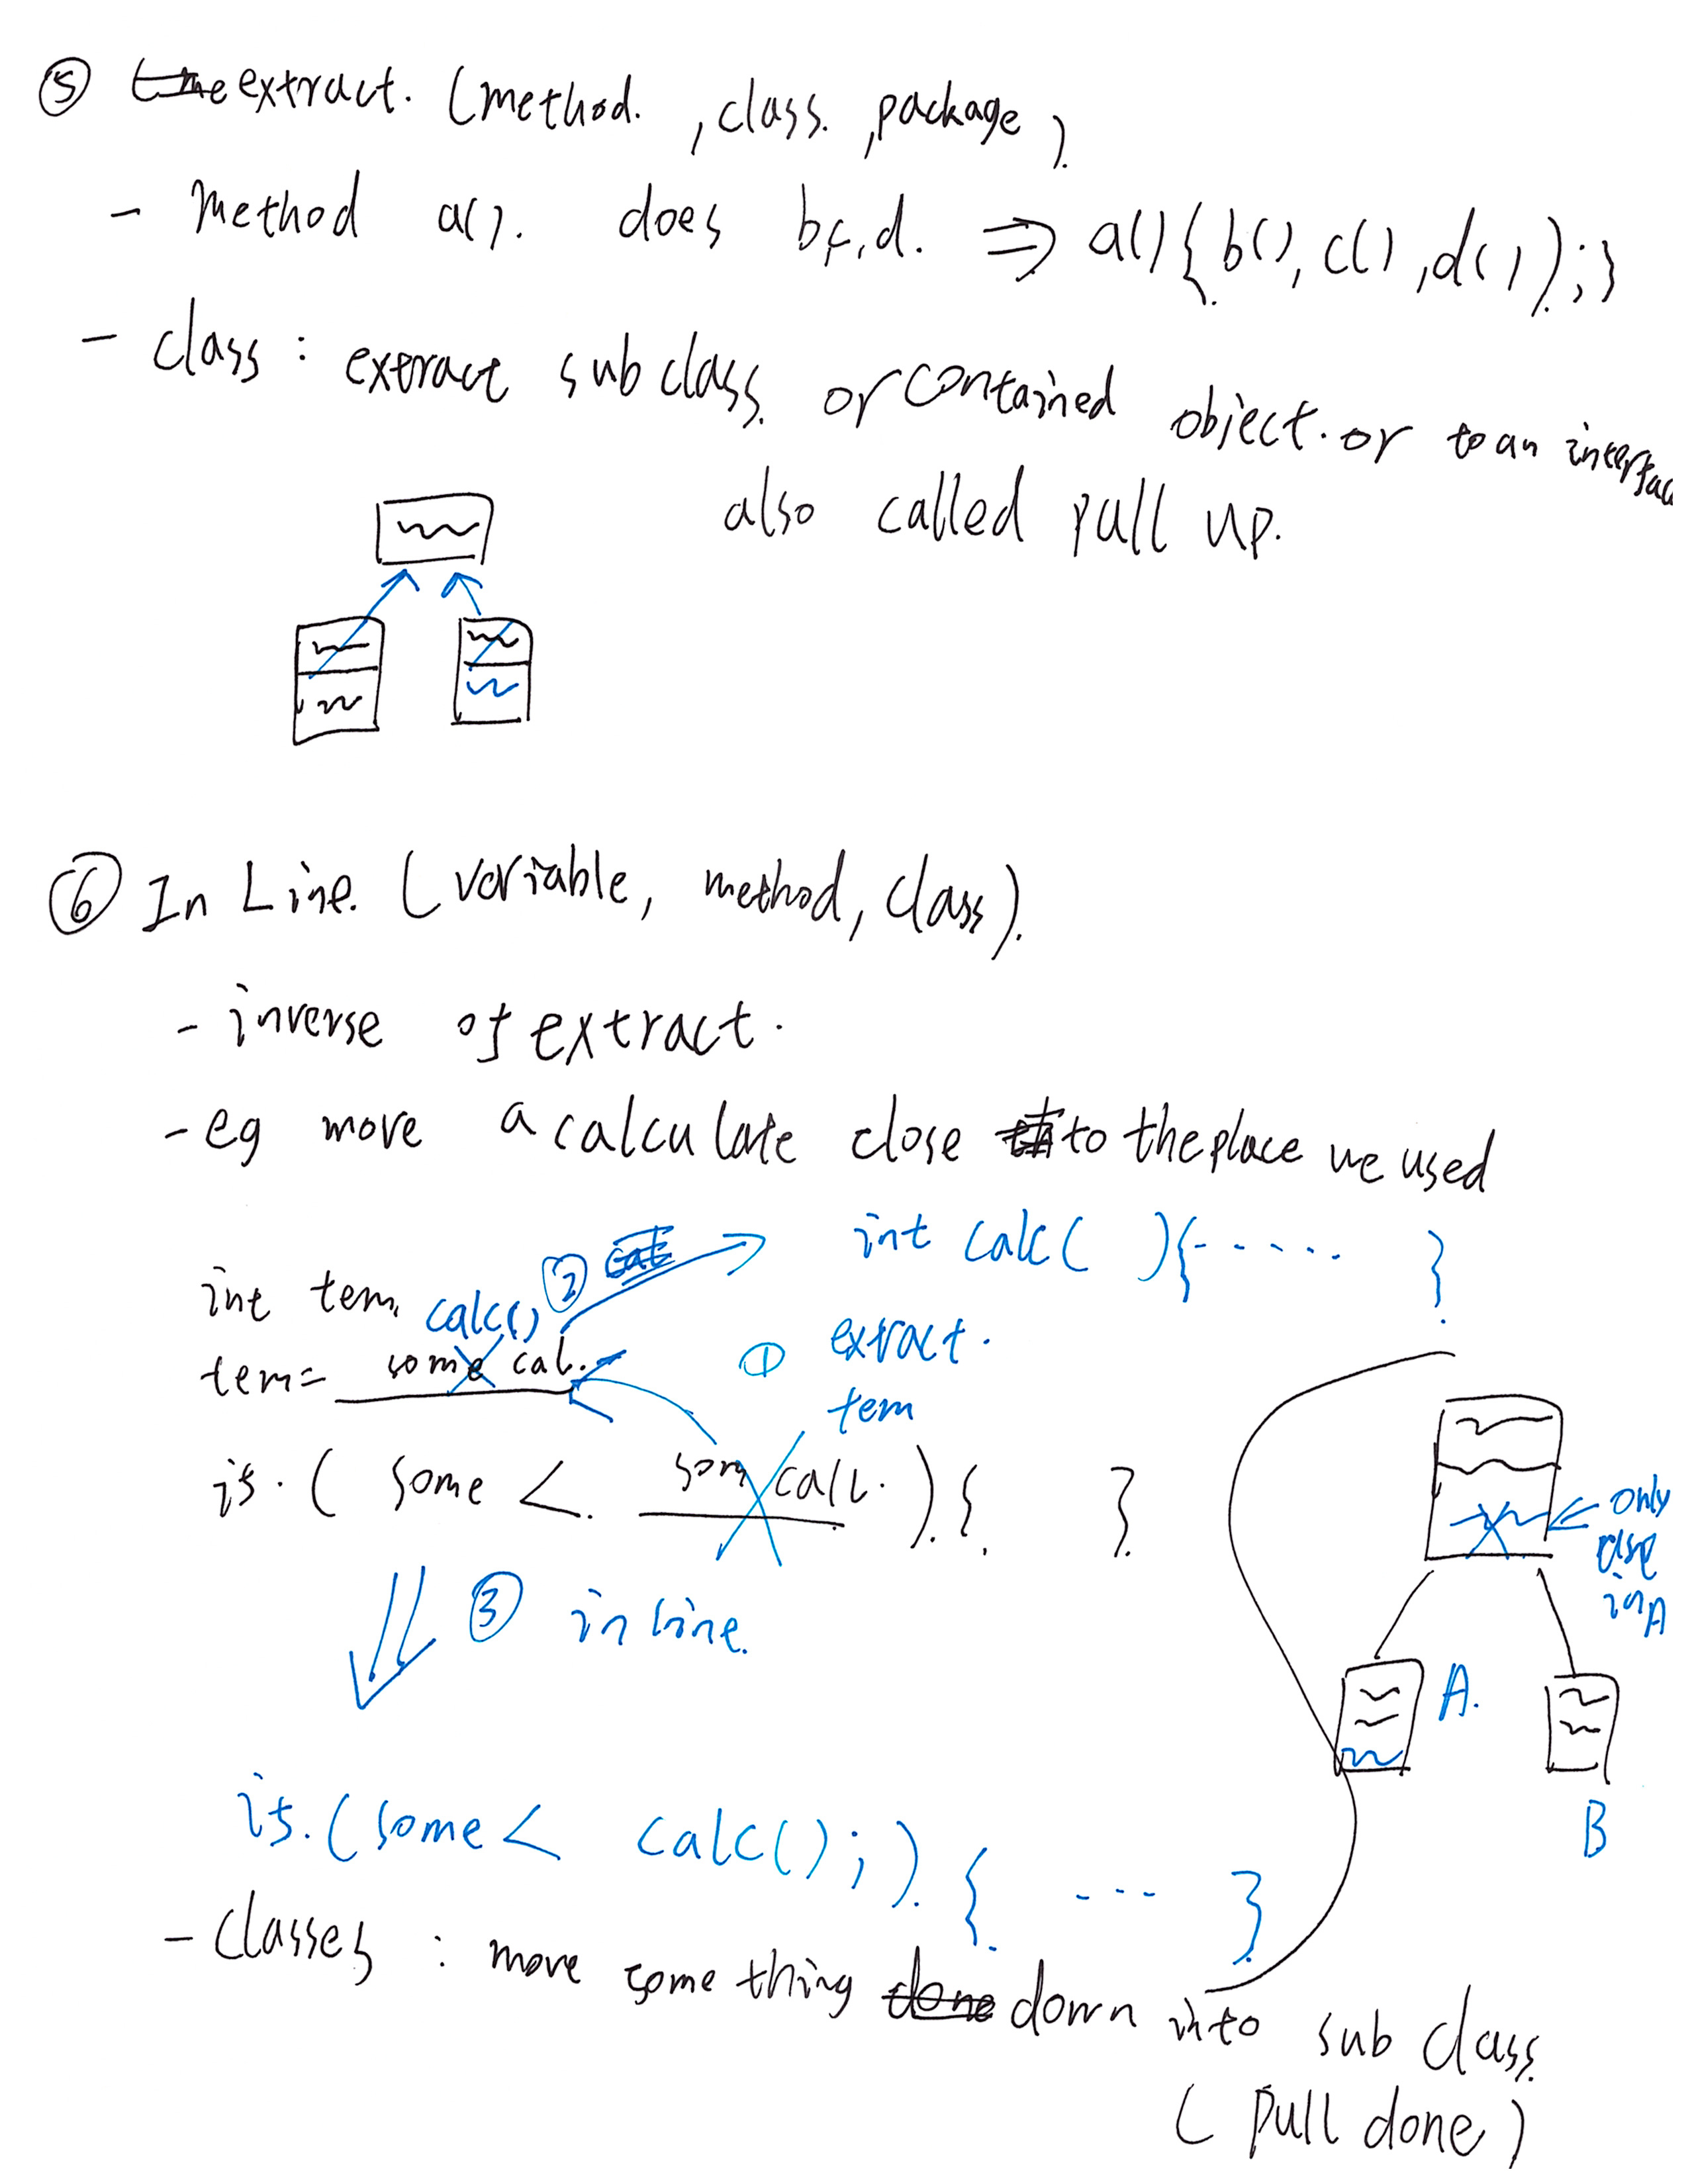 ⑤ extract. (method. , class. , package).
- Method a(). does b,c,d. ⇒ a(){b(), c(), d();}
- class : extract sub class. or contained object. or to an interfac
also called pull up.
⑥ In Line. (variable, method, class).
- inverse of extract.
- eg move a calculate close to the place we used
② int calc( ){ ----- }
int tem.
calc()
① extract. tem
tem= some cal.
is. ( some < some call. ).{ }
only use in A
③ inline.
A.
B
is. (some < calc(); ). { --- }
- Classes : move some thing down into sub class
( pull done )